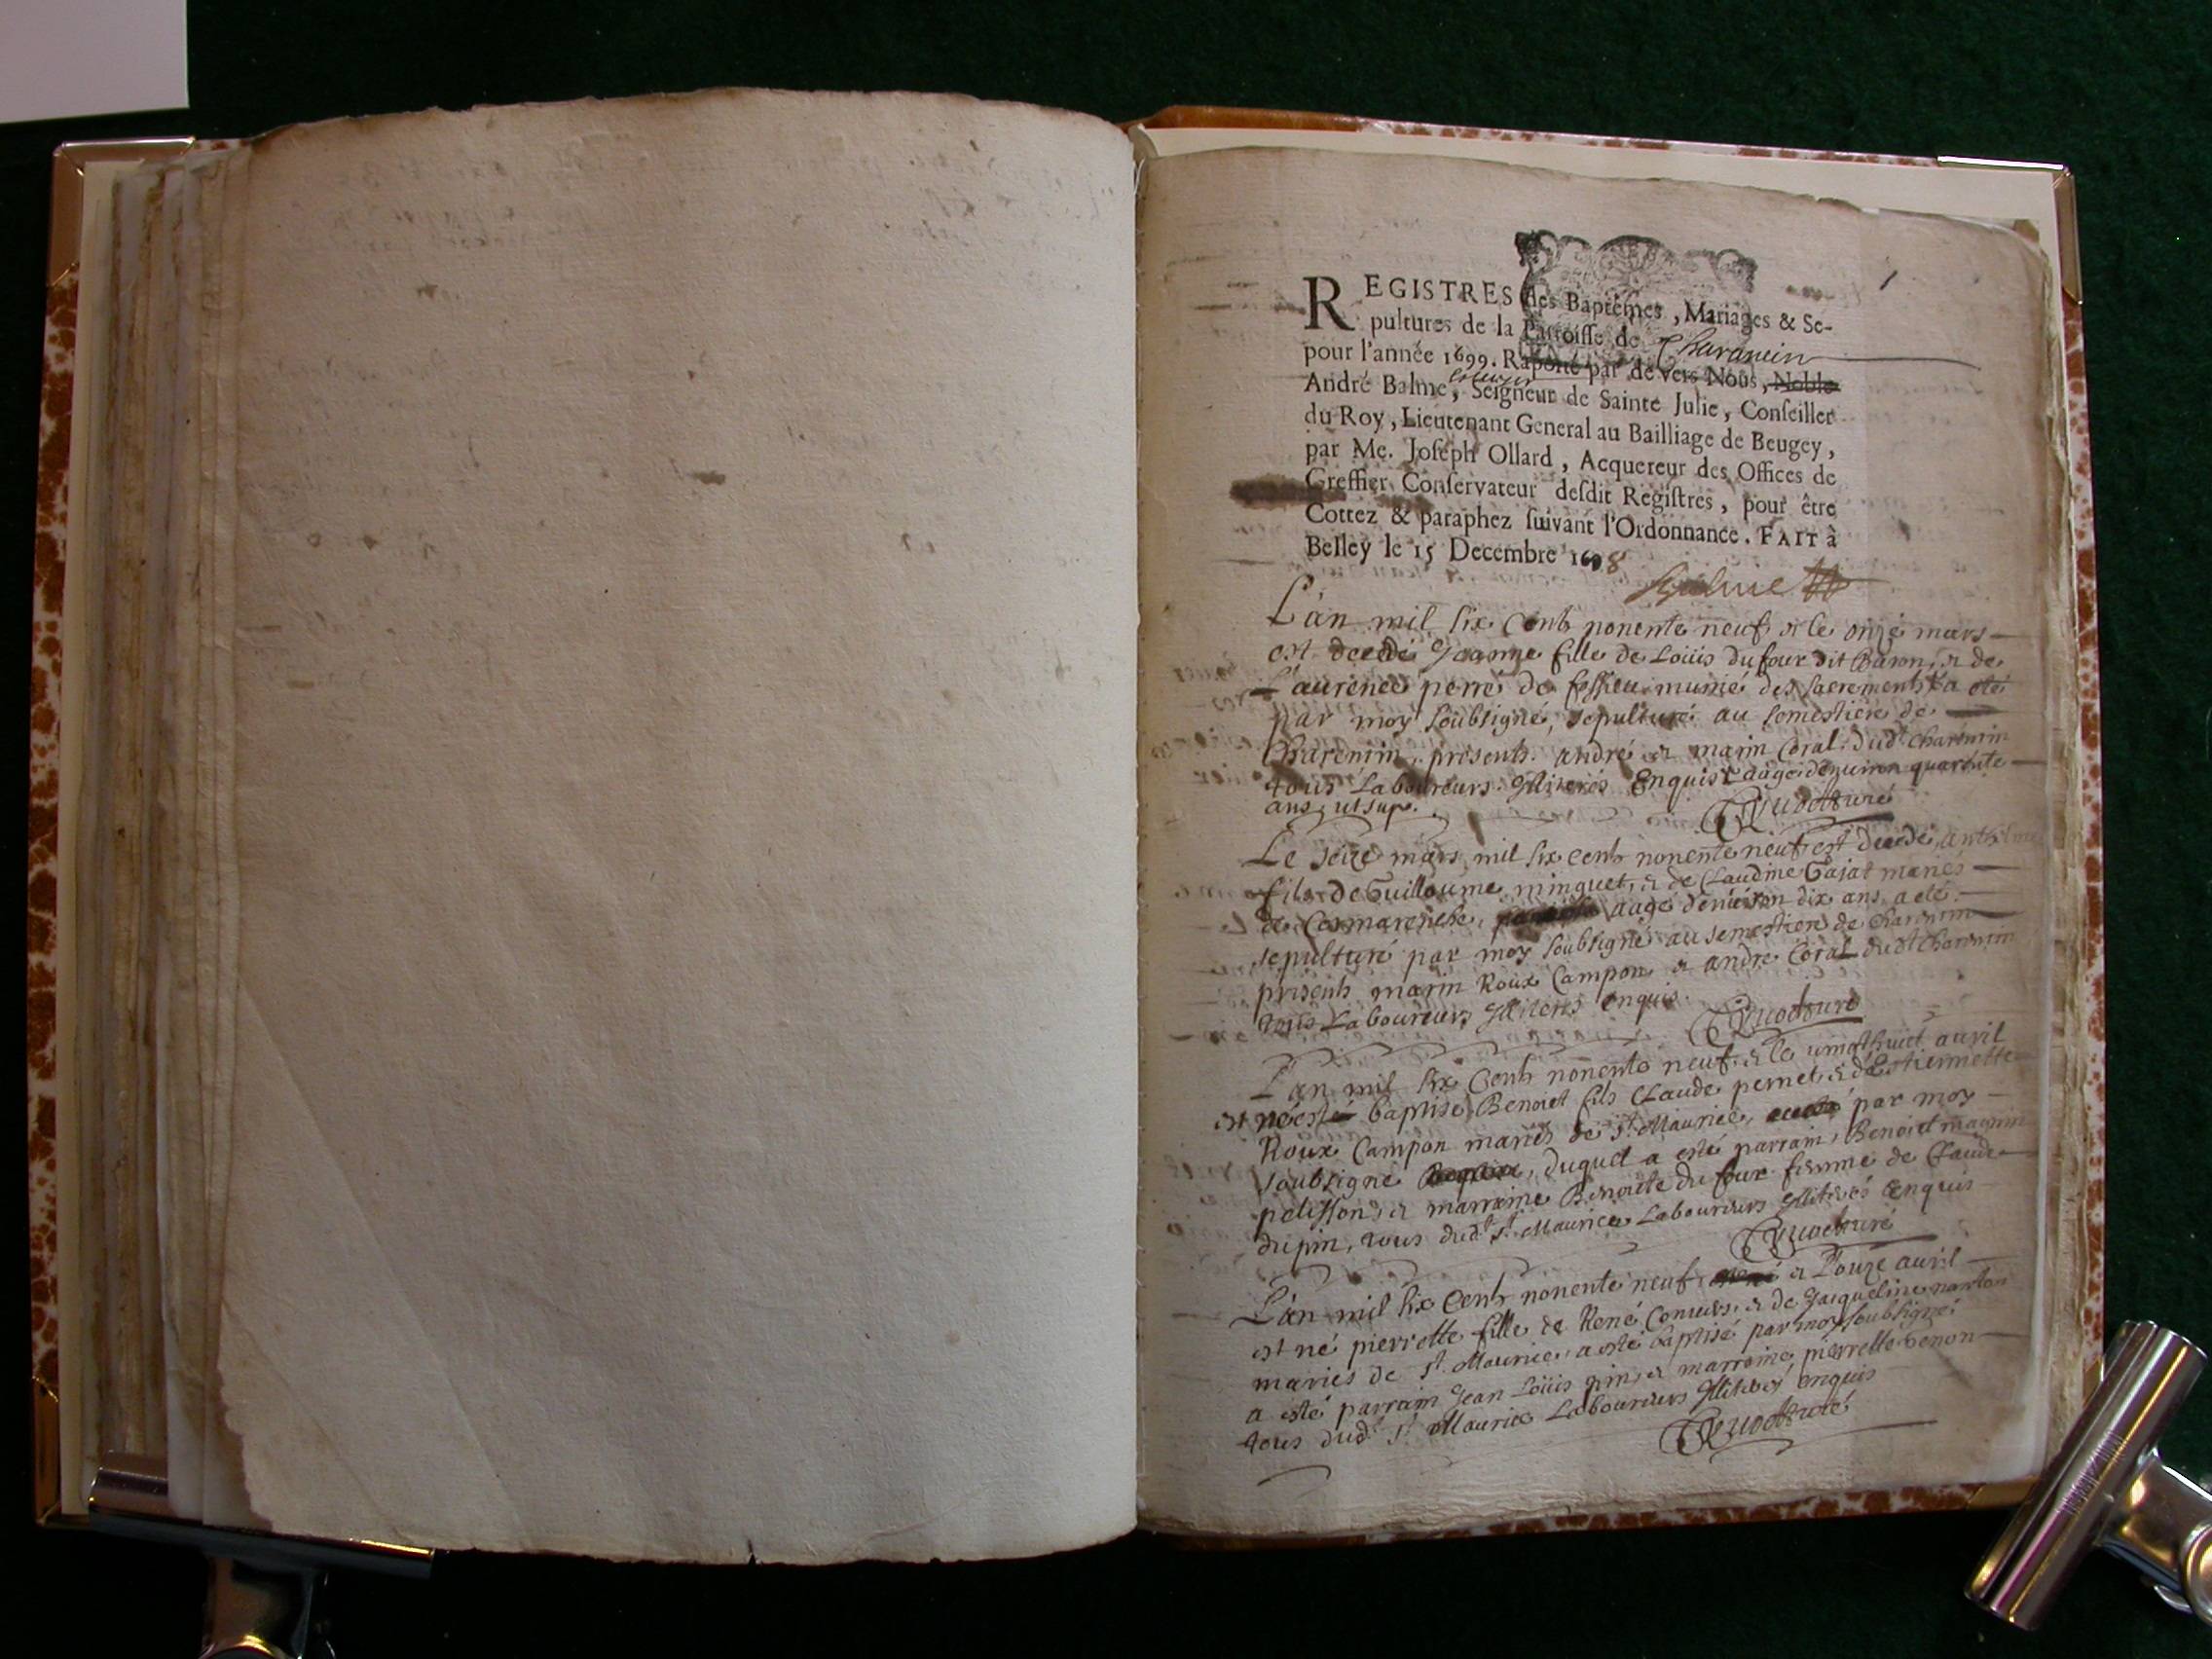 1
REGISTRES des Baptêmes, Mariages & Se-
pultures de la Parroisse de Charancin
pour l'année 1699. Raporté par devers Nous, Noble
André Balme, Seigneur de Sainte Julie, Conseiller
du Roy, Lieutenant General au Bailliage de Beugey,
par Me. Joseph Ollard, Acquereur des Offices de
Greffier Conservateur desdit Registres, pour être
Cottez & paraphez suivant l'Ordonnance. FAIT à
Belley le 15 Decembre 1698
Balme
L'an mil six Cents nonente neuf & le onze mars
est decedé Jeanne fille de Loüis dufour dit Baron, & de
Laurence perré de munié des sacrements a eté
par moy soubsigné, sepulturé au semestiere de
Charenein, presents andré & marin Coral dud.t
tous Laboureurs Illiterés Enquis aagé denuiron quarente
ans, ut sup.
Le seize mars mil six cents nonente neuf est decedé
fils de Guillaume minguet, & de Claudine Gajat mariés
de aagé denuiron dix ans a eté
sepulturé par moy soubsigné au semestiere de
presents marin Roux Campon & andre Coral dudt
tous Laboureurs Illiterés enquis
L'an mil six Cents nonente neuf & le uinethuict auril
est né esté baptisé Benoict fils Claude pernet & d'Estiennette
Roux Campon mariés de st Maurice, par moy
soubsigné, duquel a esté parrain, Benoict
pelisson & marraine Benoite du four femme de Claude
dupin, tous dudt st Maurice Laboureurs Illiterés enquis
L'an mil six Cents nonente neuf & Douze auril
est né pierrette fille de René & de Jacqueline
mariés de st Maurice, a esté baptisé par moy soubsigné
a esté parrain Jean Loüis pin, & marraine pierrette
tous dudt st Maurice Laboureurs Illiterés enquis